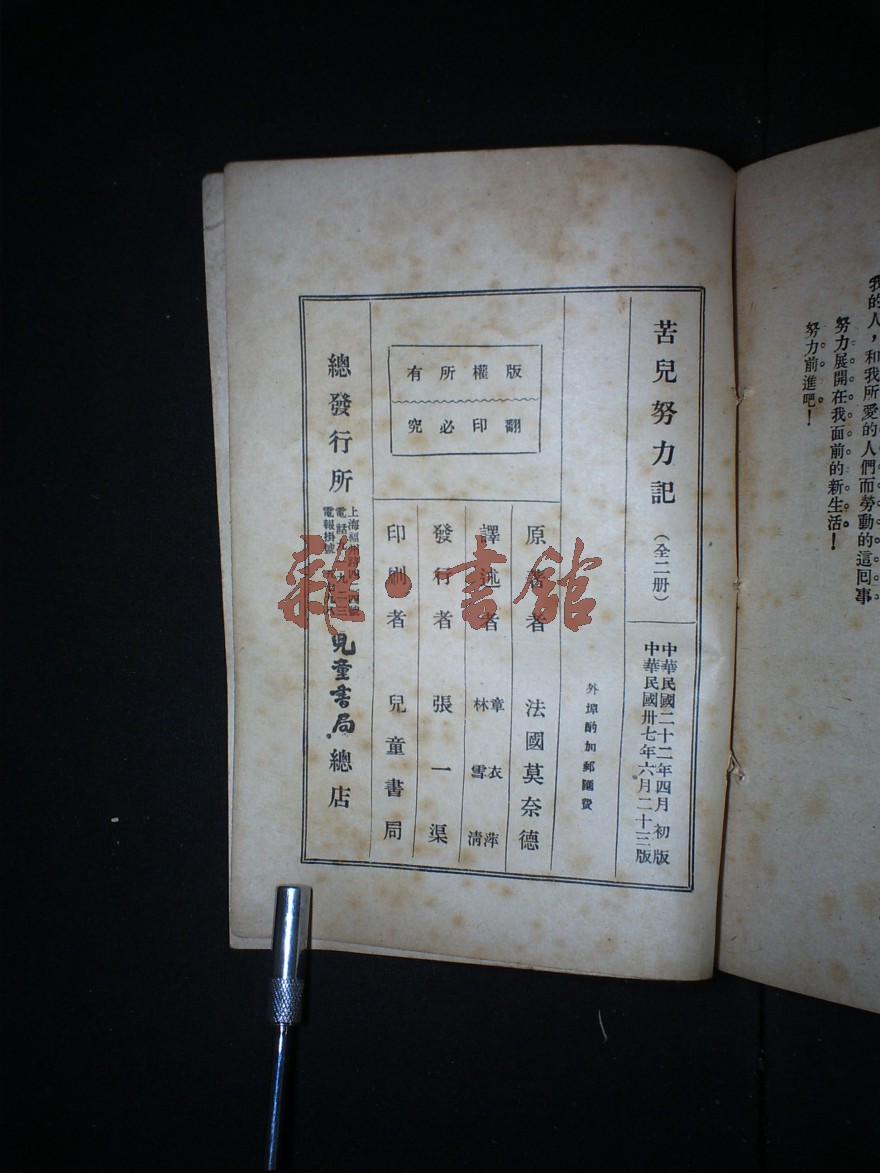 我的人，和我所愛的人們而勞動的這囘事
努力展開在我面前的新生活！
努力前進吧！
苦兒努力記
（全二册）
中華民國二十二年四月初版
中華民國卅七年六月二十三版
外埠酌加郵匯費
版權所有
翻印必究
原著者 法國莫奈德
譯述者 章衣萍
林雪清
發行者 張一渠
印刷者 兒童書局
總發行所
上海福州路四二四號
電話九
電報掛號
兒童書局總店
雜·書館